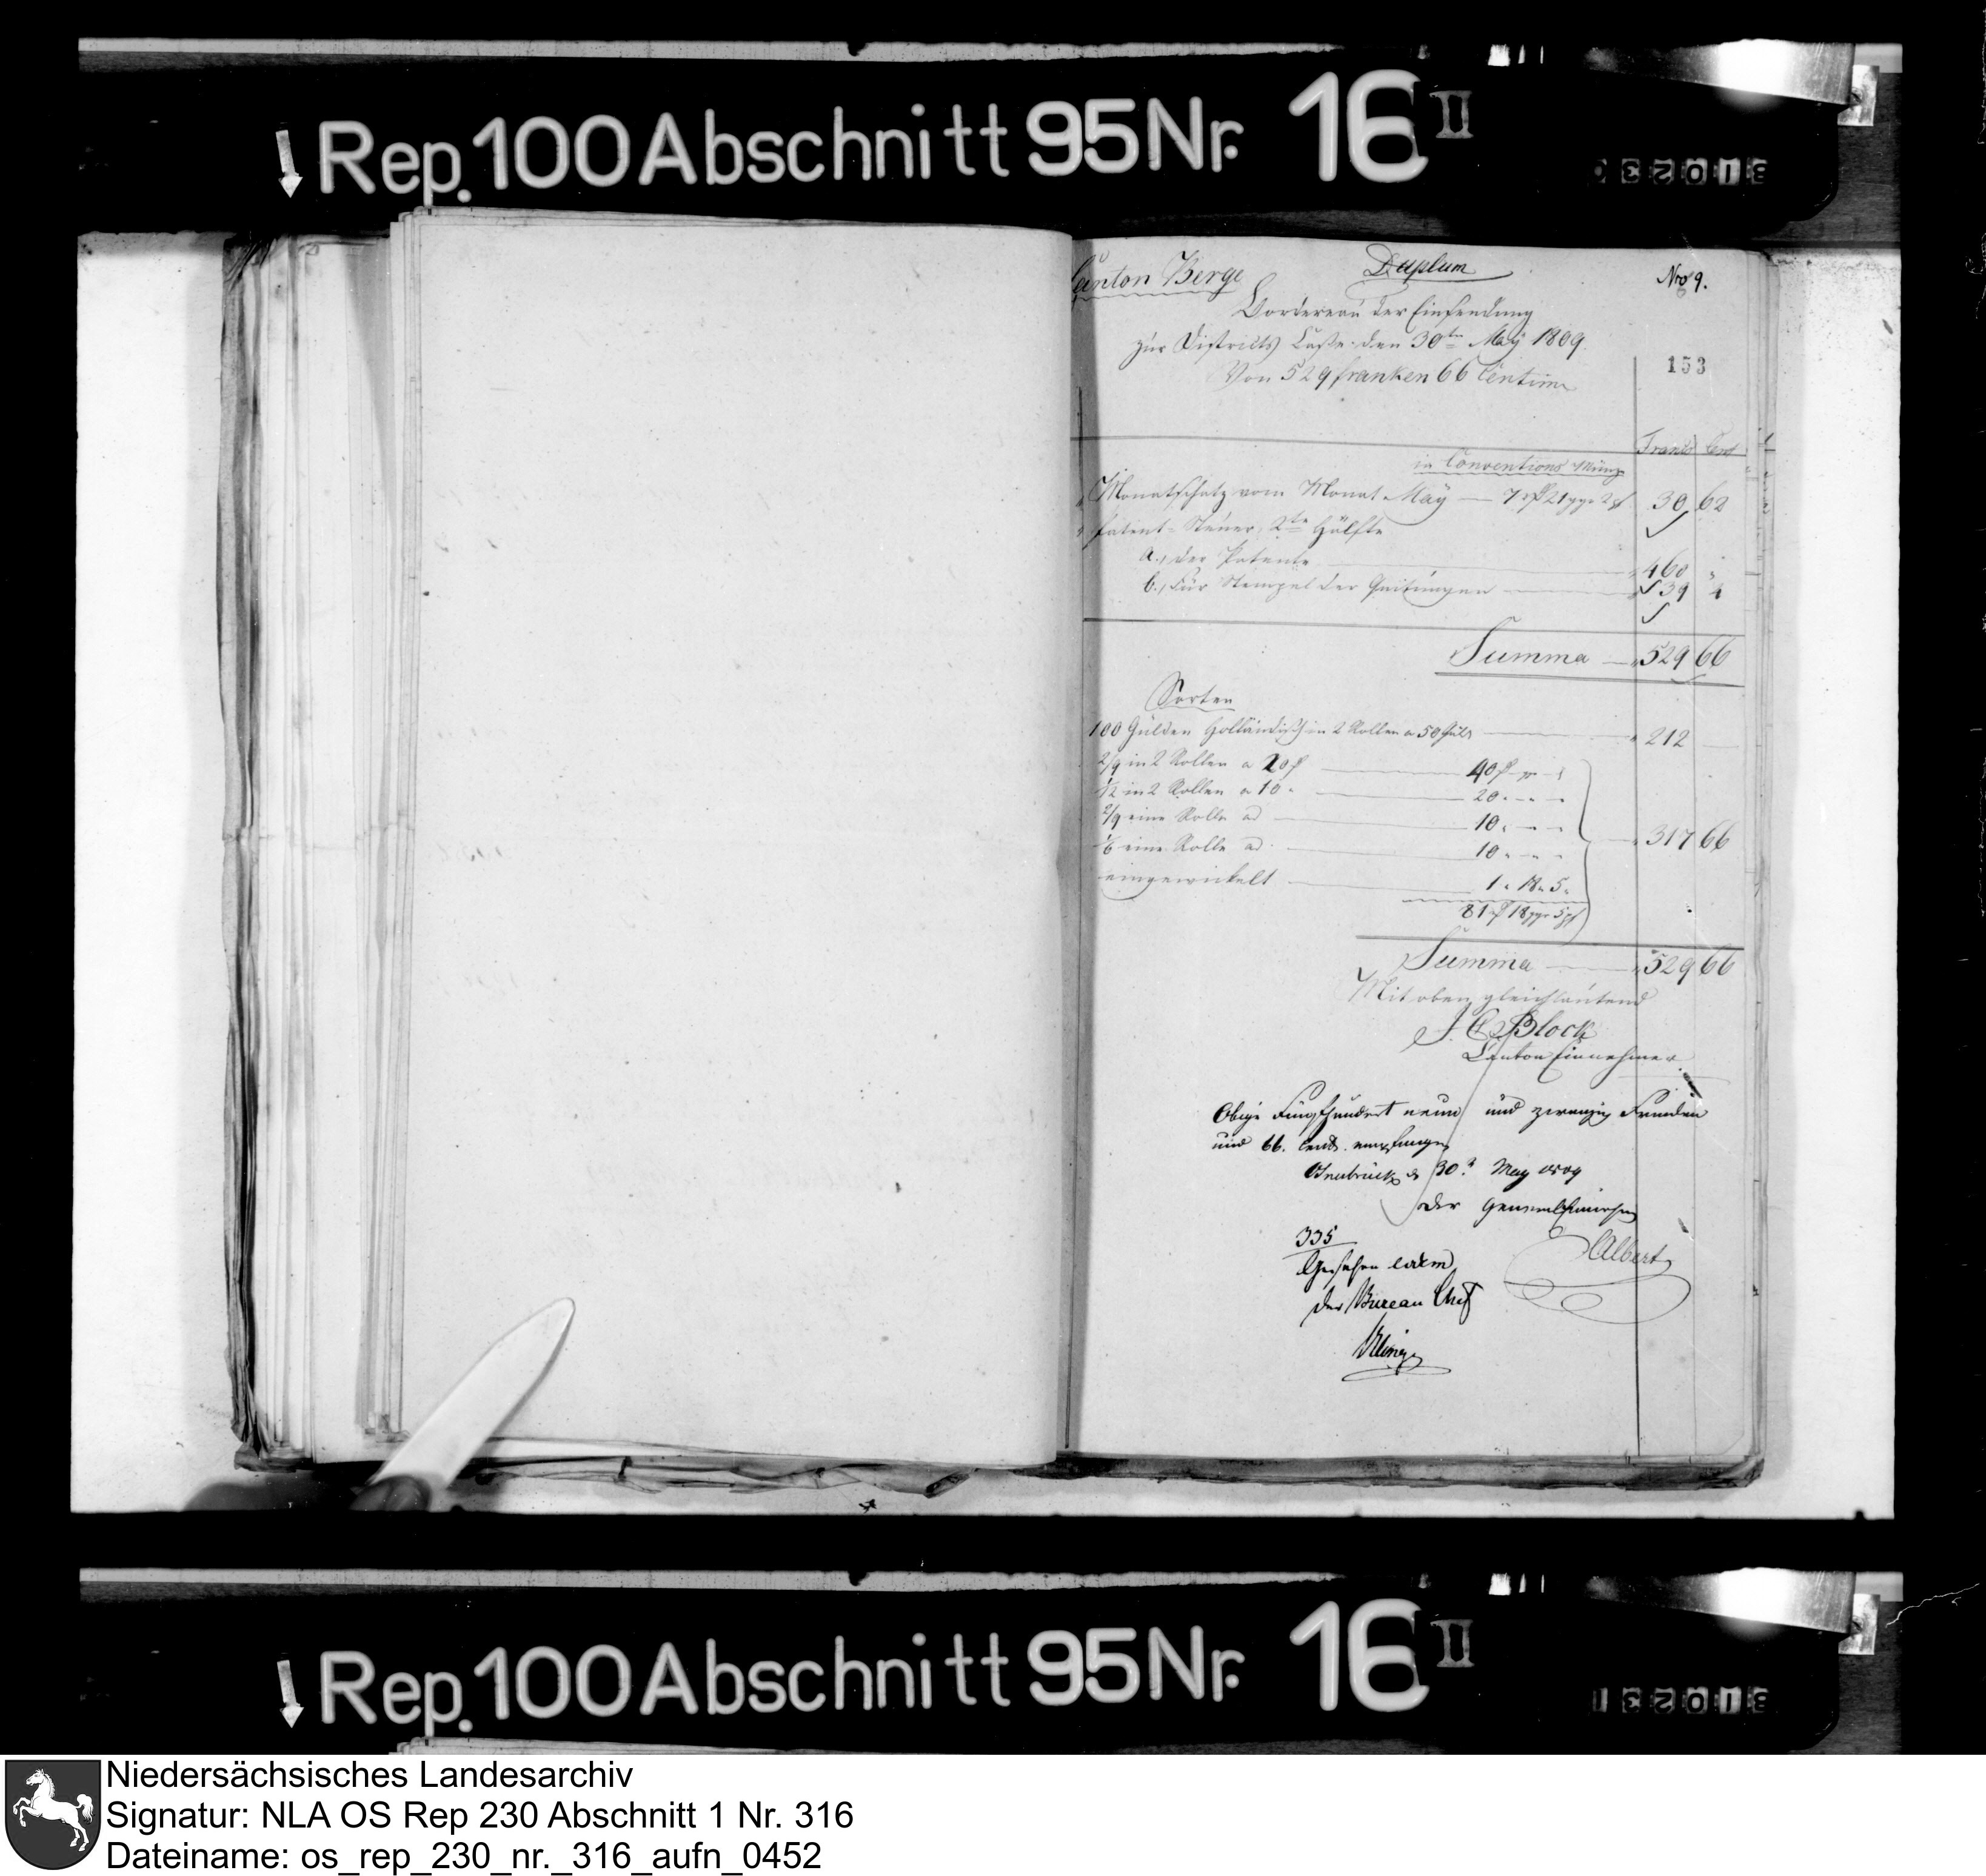 Rep. 100 Abschnitt 95 Nr. 16 II
Canton Berge
Duplum
Nro 9.
Bordereau der Einsendung
zur Districts Casse den 30ten May 1809
Von 529 franken 66 Centim
153
Francs Cent
in Conventions Münze
Monatschatz vom Monat May — 7 rt 21 ggr 2 pf 30 62
Patent-Steuer, 2te Hälfte
a., der Patente 460 "
b., für Stempel der Quitungen 39 4
Summa 529 66
Sorten
100 Gulden Holländisch in 2 Rollen a 50 Guld 212
2/9 in 2 Rollen a 20 40
1/12 in 2 Rollen a 10 20
2/9 eine Rolle ad 10
1/6 eine Rolle ad 10 317 66
eingewickelt 1 " 18 " 5 "
81 rt 18 ggr 5 pf
Summa 529 66
Mit oben gleichlautend
J. C. Block
Canton Einnehmer
Obige Fünfhundert neun und zwanzig Franken
und 66. Cent. empfangen
Osnabrück d 30. May 1809
der General Einnehmer
Albert
335
Gesehen eodem
der Bureau Chef
Rep. 100 Abschnitt 95 Nr. 16 II
Niedersächsisches Landesarchiv
Signatur: NLA OS Rep 230 Abschnitt 1 Nr. 316
Dateiname: os_rep_230_nr._316_aufn_0452